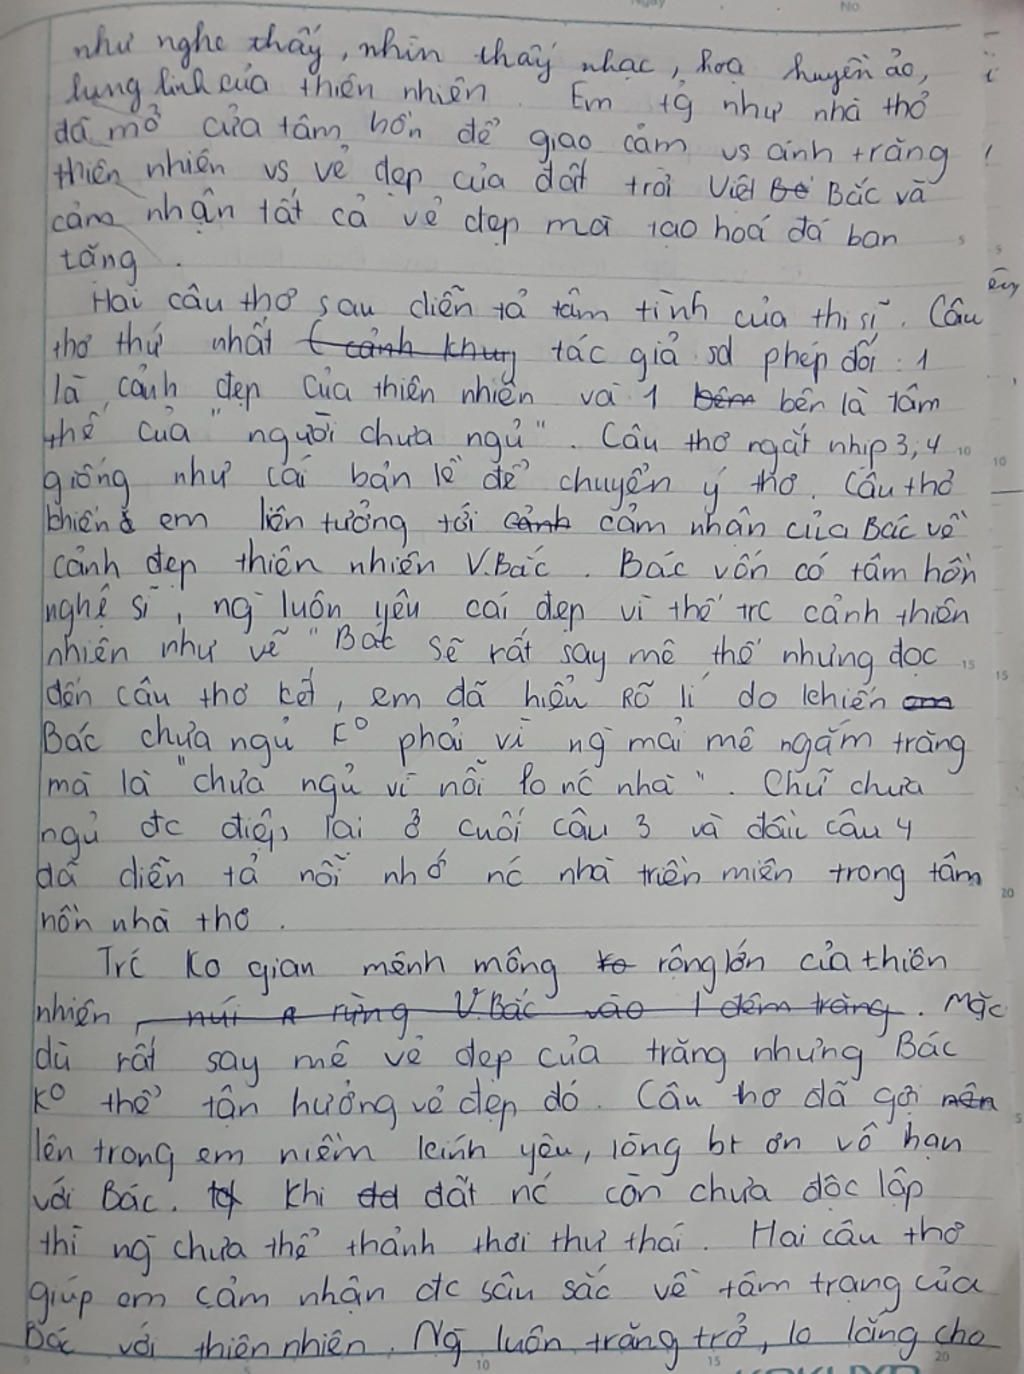 như nghe thấy, nhìn thấy nhạc, hoạ huyền ảo,
lung linh của thiên nhiên. Em tg như nhà thơ
đã mở cửa tâm hồn để giao cảm vs ánh trăng
thiên nhiên vs vẻ đẹp của đất trời Việt Bắc và
cảm nhận tất cả vẻ đẹp mà tạo hoá đã ban
tặng.
Hai câu thơ sau diễn tả tâm tình của thi sĩ. Câu
thơ thứ nhất (cảnh khuy tác giả sd phép đối: 1
là cảnh đẹp của thiên nhiên và 1 bêm bên là tâm
thế của "người chưa ngủ". Câu thơ ngắt nhịp 3, 4
giống như cái bản lề để chuyển ý thơ. Câu thơ
khiến em liên tưởng tới cảnh cảm nhân của Bác về
cảnh đẹp thiên nhiên V.Bắc. Bác vốn có tâm hồn
nghệ sĩ, ng luôn yêu cái đẹp vì thế trc cảnh thiên
nhiên như vẽ" Bác sẽ rất say mê thế nhưng đọc
đến câu thơ kết, em đã hiểu rõ lí do khiến em
Bác chưa ngủ K° phải vì ng mải mê ngắm trăng
mà là "chưa ngủ vì nỗi lo nc nhà". Chữ chưa
ngủ đc điệp lại ở cuối câu 3 và đầu câu 4
đã diễn tả nỗi nhớ nc nhà triền miên trong tâm
hồn nhà thơ.
Trc ko gian mênh mông to rộng lớn của thiên
nhiên, núi rừng V.Bắc vào 1 đêm trăng. Mặc
dù rất say mê vẻ đẹp của trăng nhưng Bác
K° thể tận hưởng vẻ đẹp đó. Câu thơ đã gợi nên
lên trong em niềm kính yêu, lòng bt ơn vô hạn
với Bác. Khi đất nc còn chưa độc lập
thì ng chưa thể thảnh thơi thư thái. Hai câu thơ
giúp em cảm nhận đc sâu sắc về tâm trạng của
Bác với thiên nhiên. Ng luôn trăng trở, lo lắng cho